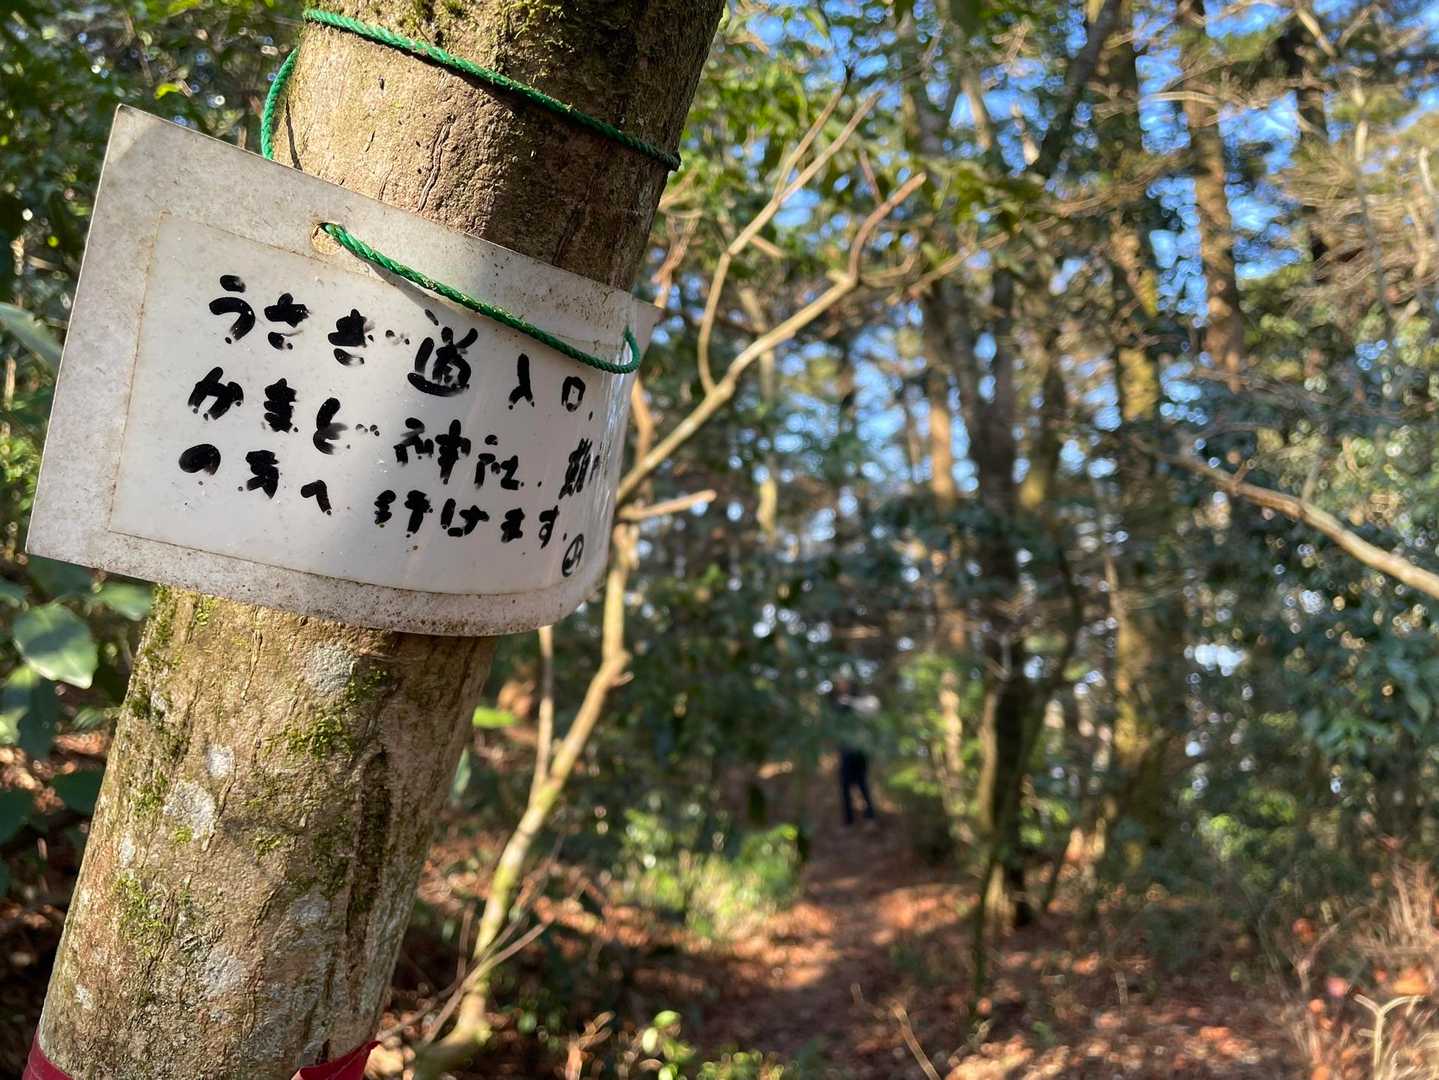 うさぎ道入口.
かまど神社.
の方へ行けます.